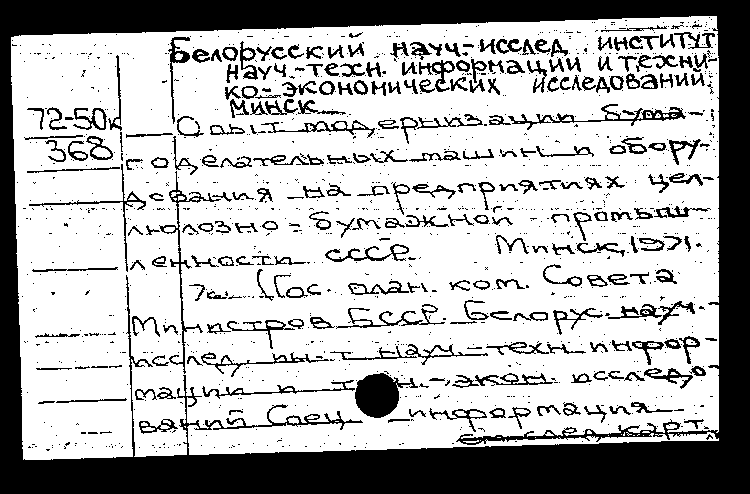 Белорусский науч.-исслед. институт
науч.-техн. информации и техни-
ко-экономических исследований,
Минск
72-50к
368
Опыт модернизации бума-
годелательных машин и обору-
дования на предприятиях цел-
люлозно-бумажной промыш-
ленности СССР. Минск, 1971.
(Гос. план. ком. Совета
Министров БССР. Белорус. науч.-
исслед. ин-т науч.-техн. инфор-
мации и техн.-экон. исследо-
ваний Спец. информация
см след. карт.